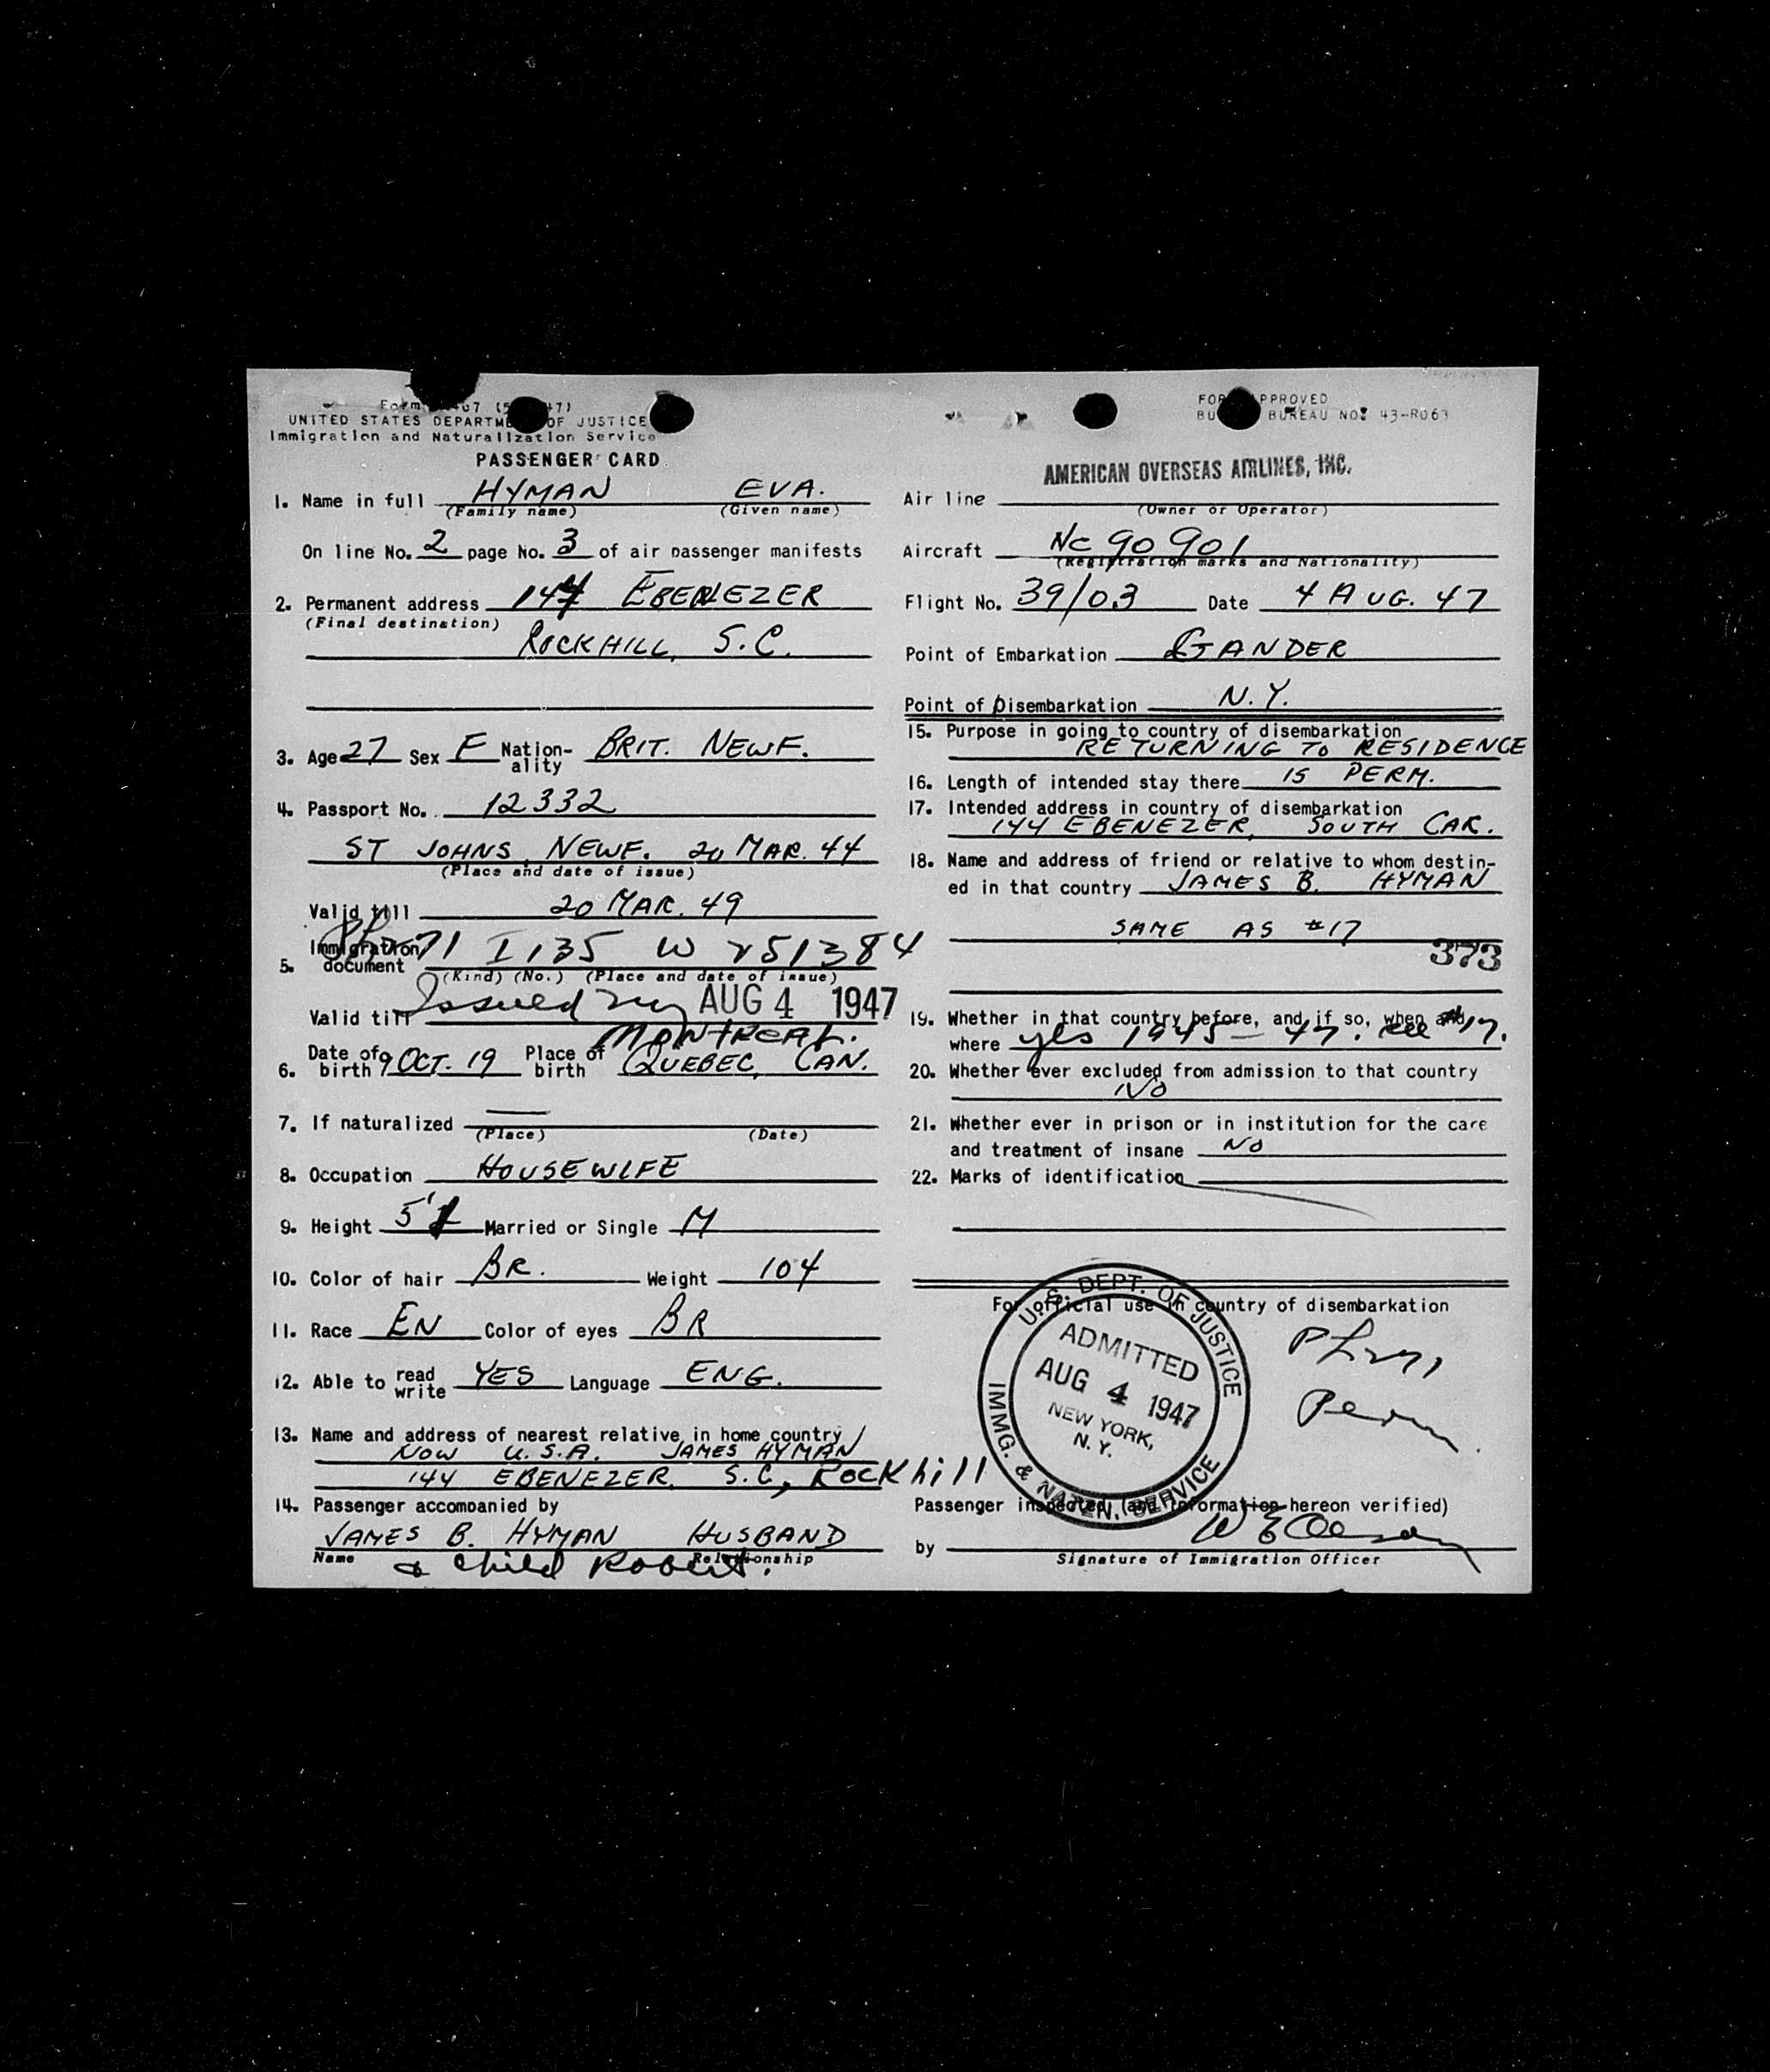 UNITED STATES DEPARTMENT OF JUSTICE
Immigration and Naturalization Service
PASSENGER CARD
1. Name in full HYMAN EVA.
(Family name) (Given name)
On line No. 2 page No. 3 of air passenger manifests
2. Permanent address 144 EBENEZER
(Final destination)
ROCKHILL, S.C.
3. Age 27 Sex F Nation-ality BRIT. NEWF.
4. Passport No. 12332
ST JOHNS, NEWF. 20 MAR. 44
(Place and date of issue)
Valid till 20 MAR. 49
5. Immigration document I 135 W 251384
(Kind) (No.) (Place and date of issue)
Valid till Issued NY AUG 4 1947
MONTREAL.
6. Date of birth 9 OCT. 19 Place of birth QUEBEC, CAN.
7. If naturalized —
(Place) (Date)
8. Occupation HOUSEWIFE
9. Height 5' Married or Single M
10. Color of hair BR. Weight 104
11. Race EN Color of eyes BR
12. Able to read write YES Language ENG.
13. Name and address of nearest relative in home country
NOW U.S.A. JAMES HYMAN
144 EBENEZER. S.C., ROCK hill
14. Passenger accompanied by
JAMES B. HYMAN HUSBAND
Name Relationship
& child Robert.
FORM APPROVED
BUREAU NO. 43-R063
AMERICAN OVERSEAS AIRLINES, INC.
Air line
(Owner or Operator)
Aircraft NC 90901
(Registration marks and Nationality)
Flight No. 39/03 Date 4 AUG. 47
Point of Embarkation GANDER
Point of Disembarkation N.Y.
15. Purpose in going to country of disembarkation
RETURNING TO RESIDENCE
16. Length of intended stay there IS PERM.
17. Intended address in country of disembarkation
144 EBENEZER, SOUTH CAR.
18. Name and address of friend or relative to whom destin-
ed in that country JAMES B. HYMAN
SAME AS #17
373
19. Whether in that country before, and if so, when and
where yes 1945 – 47. see #17.
20. Whether ever excluded from admission to that country
NO
21. Whether ever in prison or in institution for the care
and treatment of insane NO
22. Marks of identification
For official use in country of disembarkation
U.S. DEPT. OF JUSTICE
ADMITTED
AUG 4 1947
NEW YORK,
N.Y.
IMMG. & NATZN. SERVICE
Perm.
Passenger inspected, (and information hereon verified)
by
Signature of Immigration Officer